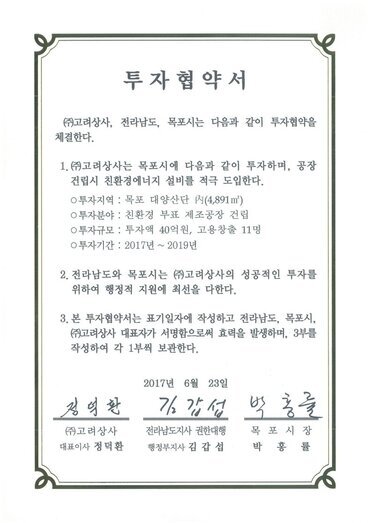 투자협약서
㈜고려상사, 전라남도, 목포시는 다음과 같이 투자협약을
체결한다.
1. ㈜고려상사는 목포시에 다음과 같이 투자하며, 공장
건립시 친환경에너지 설비를 적극 도입한다.
○투자지역 : 목포 대양산단 內(4,891㎡)
○투자분야 : 친환경 부표 제조공장 건립
○투자규모 : 투자액 40억원, 고용창출 11명
○투자기간 : 2017년 ~ 2019년
2. 전라남도와 목포시는 ㈜고려상사의 성공적인 투자를
위하여 행정적 지원에 최선을 다한다.
3. 본 투자협약서는 표기일자에 작성하고 전라남도, 목포시,
㈜고려상사 대표자가 서명함으로써 효력을 발생하며, 3부를
작성하여 각 1부씩 보관한다.
2017년 6월 23일
정덕환 김갑섭 박홍률
㈜고려상사 전라남도지사 권한대행 목포시장
대표이사 정덕환 행정부지사 김갑섭 박홍률